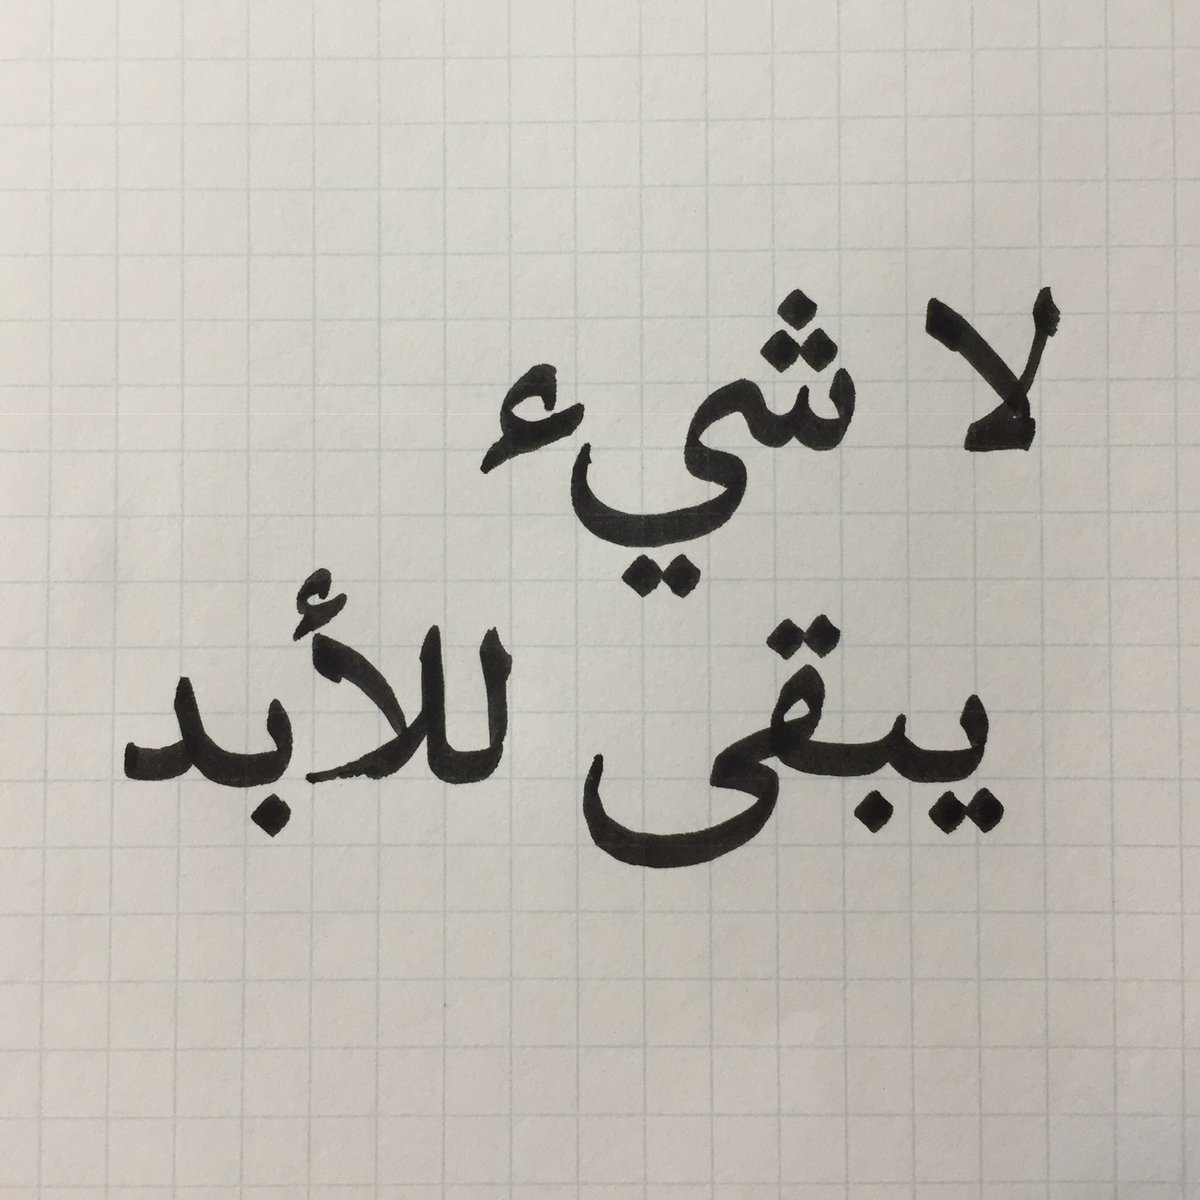 لا شيء
يبقى للأبد